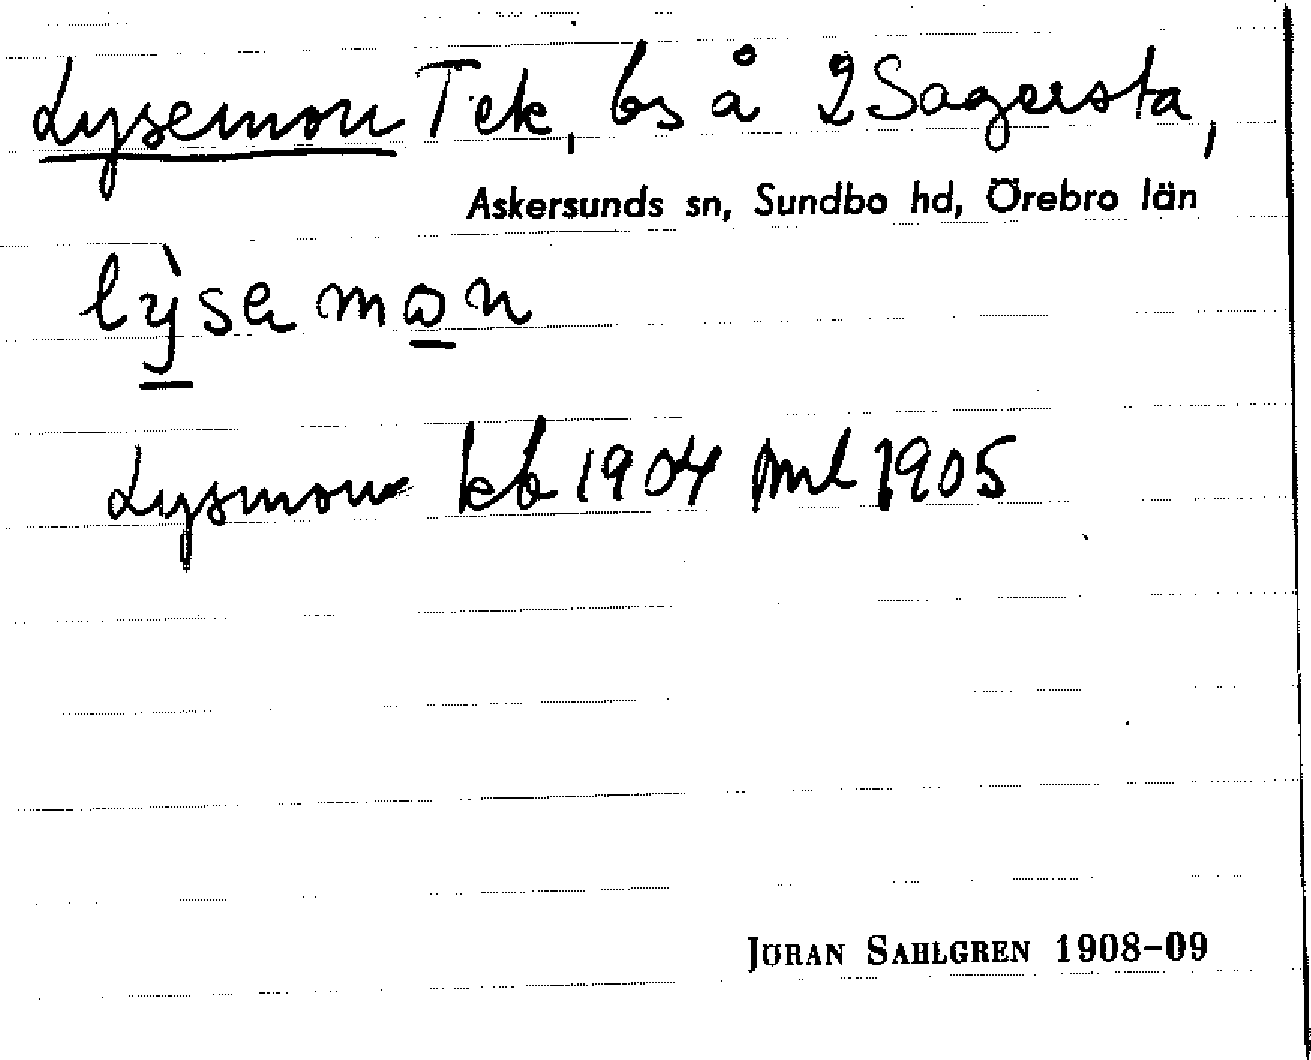 Lysemon Tek, bs å 2 Sagersta,
Askersunds sn, Sundbo hd, Örebro län
lỳsamon
Lysmon kb 1904 ml 1905
JÖRAN SAHLGREN 1908–09